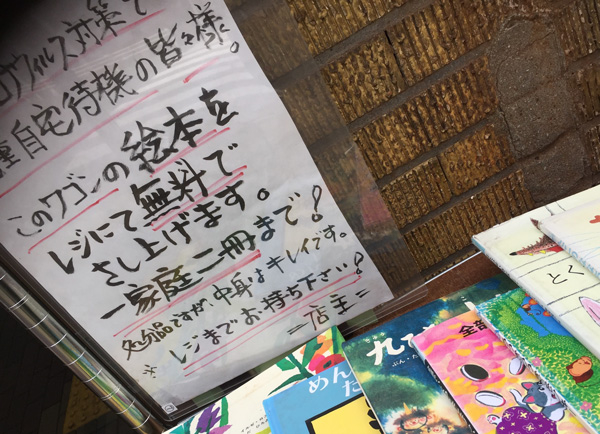 ウィルス対策で
自宅待機の皆々様。
このワゴンの絵本を
レジにて無料で
さし上げます。
一家庭二冊まで!
処分品ですが中身はキレイです。
※レジまでお持ち下さい!
=店主=
とく
全部
九
ぶん・た
めん
た